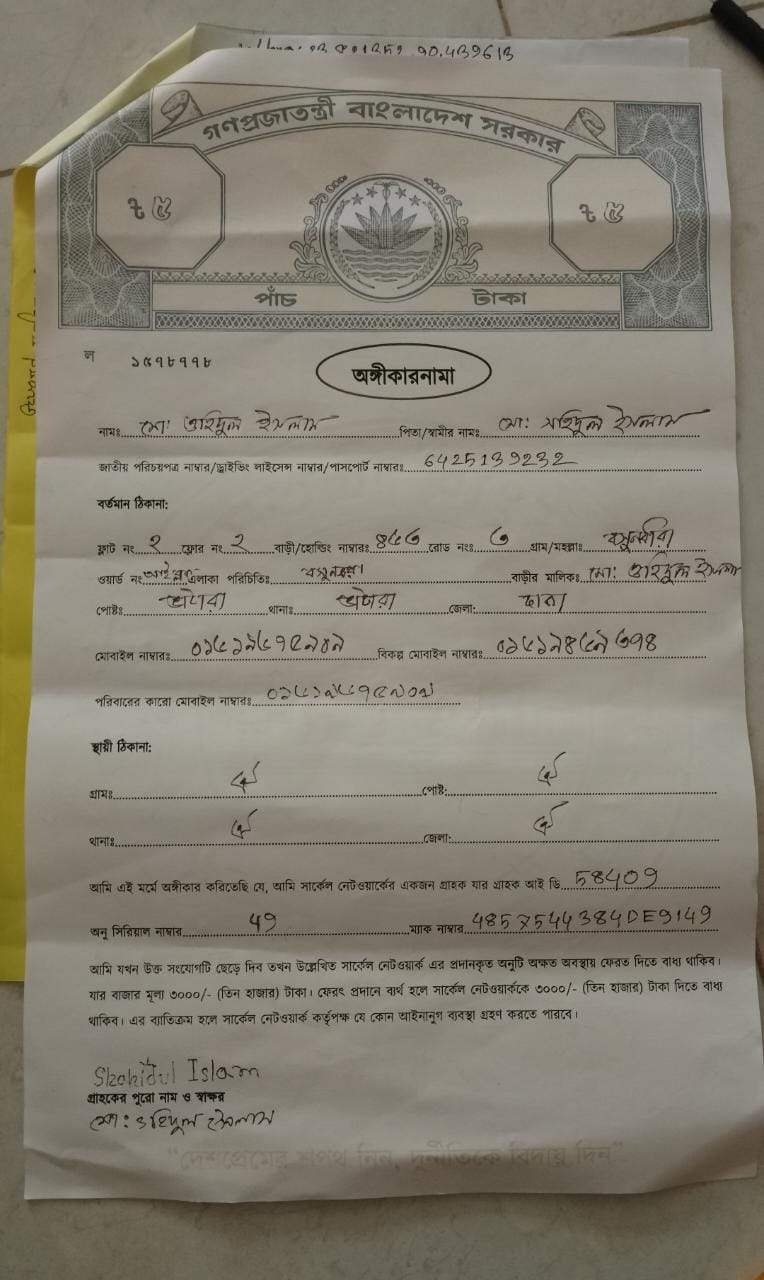 90.439613
গণপ্রজাতন্ত্রী বাংলাদেশ সরকার
৳ ৫ ৳ ৫
পাঁচ টাকা
ল ১৫৭৮৭৭৮
অঙ্গীকারনামা
নামঃ মো: ওহিদুল ইসলাম পিতা/স্বামীর নামঃ মো: সহিদুল ইসলাম
জাতীয় পরিচয়পত্র নাম্বার/ড্রাইভিং লাইসেন্স নাম্বার/পাসপোর্ট নাম্বারঃ 6425139232
বর্তমান ঠিকানা:
ফ্লাট নং ২ ফ্লোর নং ২ বাড়ী/হোল্ডিং নাম্বারঃ ৪৫৩ রোড নংঃ ৩ গ্রাম/মহল্লাঃ বসুন্ধরা
ওয়ার্ড নং এলাকা পরিচিতিঃ বসুন্ধরা বাড়ীর মালিকঃ মো: ওহিদুল ইসলাম
পোষ্টঃ ভাটারা থানাঃ ভাটারা জেলা: ঢাকা
মোবাইল নাম্বারঃ বিকল্প মোবাইল নাম্বারঃ
পরিবারের কারো মোবাইল নাম্বারঃ
স্থায়ী ঠিকানা:
গ্রামঃ ঐ পোষ্ট: ঐ
থানাঃ ঐ জেলা: ঐ
আমি এই মর্মে অঙ্গীকার করিতেছি যে, আমি সার্কেল নেটওয়ার্কের একজন গ্রাহক যার গ্রাহক আই ডি 58409
অনু সিরিয়াল নাম্বার 49 ম্যাক নাম্বার 4857544384DE9149
আমি যখন উক্ত সংযোগটি ছেড়ে দিব তখন উল্লেখিত সার্কেল নেটওয়ার্ক এর প্রদানকৃত অনুটি অক্ষত অবস্থায় ফেরত দিতে বাধ্য থাকিব।
যার বাজার মূল্য ৩০০০/- (তিন হাজার) টাকা। ফেরৎ প্রদানে ব্যর্থ হলে সার্কেল নেটওয়ার্ককে ৩০০০/- (তিন হাজার) টাকা দিতে বাধ্য
থাকিব। এর ব্যাতিক্রম হলে সার্কেল নেটওয়ার্ক কর্তৃপক্ষ যে কোন আইনানুগ ব্যবস্থা গ্রহণ করতে পারবে।
Shahidul Islam
গ্রাহকের পুরো নাম ও স্বাক্ষর
মো: ওহিদুল ইসলাম
"দেশপ্রেমের শপথ নিন, দুর্নীতিকে বিদায় দিন"